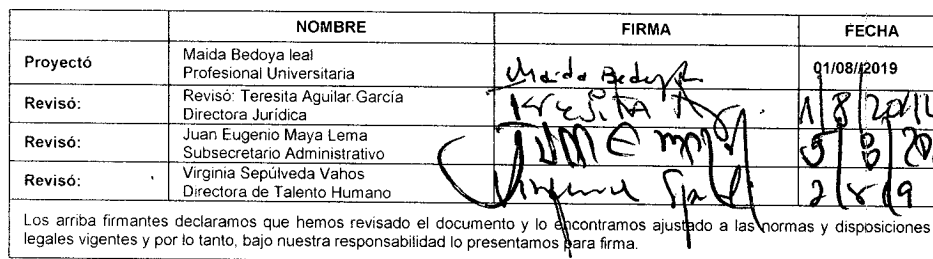 NOMBRE FIRMA FECHA
Proyectó Maida Bedoya leal
Profesional Universitaria Maida Bedoya 01/08//2019
Revisó: Revisó: Teresita Aguilar García
Directora Jurídica Teresita A
Revisó: Juan Eugenio Maya Lema
Subsecretario Administrativo
Revisó: Virginia Sepúlveda Vahos
Directora de Talento Humano Virginia
Los arriba firmantes declaramos que hemos revisado el documento y lo encontramos ajustado a las normas y disposiciones
legales vigentes y por lo tanto, bajo nuestra responsabilidad lo presentamos para firma.